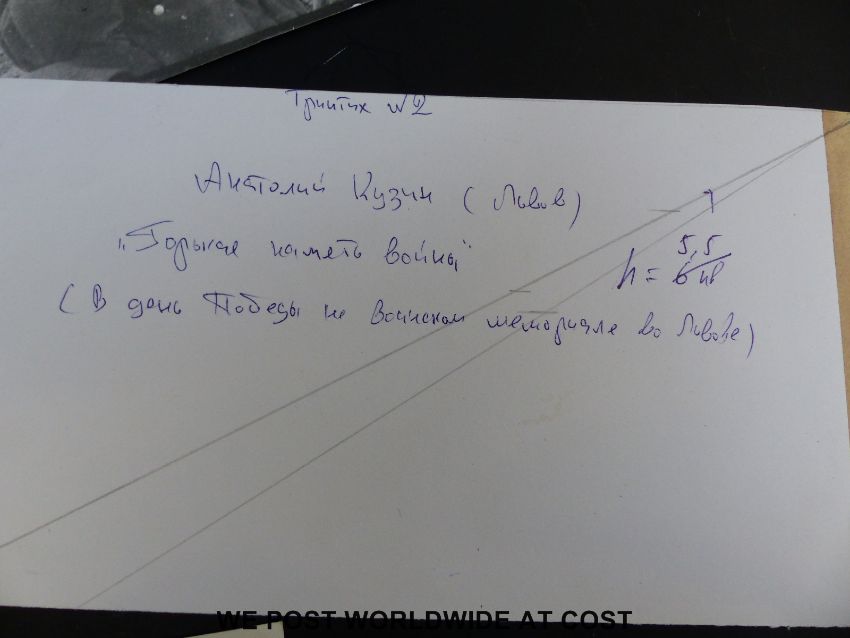 Триптих №2
Анатолий Кузин (Львов)
7
„Горькая память войны"
5,5
h = 6 кв
(В день Победы на Воинском мемориале во Львове)
WE POST WORLDWIDE AT COST